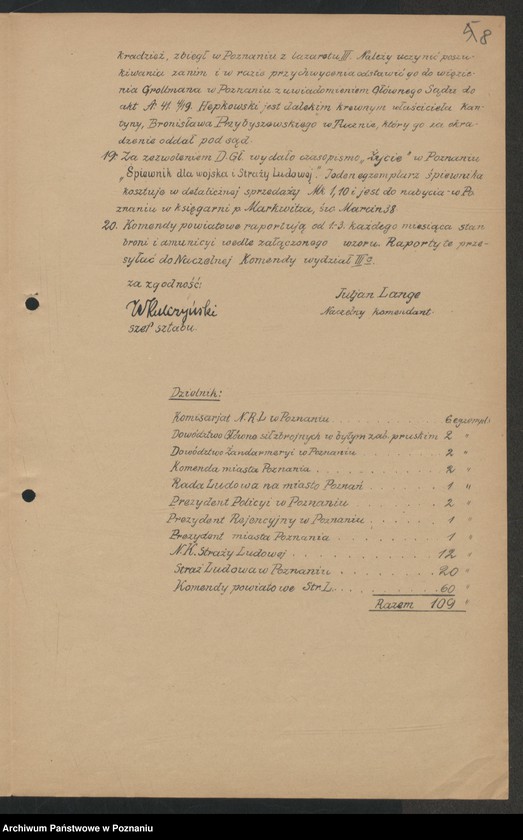 8
kradzież, zbiegł w Poznaniu z lazaretu III. Należy uczynić poszu-
kiwania zanim i w razie przychwycenia odstawić go do więzie-
nia Grollmana w Poznaniu z uwiadomieniem Głównego Sądu do
akt A 41. 4/19. Hepkowski jest dalekim krewnym właściciela kan-
tyny, Bronisława Przybyszewskiego w, który go za okra-
dzenie oddał pod sąd.
19. Za zezwoleniem D. Gł. wydało czasopismo „Życie" w Poznaniu
„Śpiewnik dla wojska i Straży Ludowej". Jeden egzemplarz śpiewnika
kosztuje w detalicznej sprzedaży Mk 1,10 i jest do nabycia w Po
znaniu w księgarni p. Markwitza, św. Marcin 58
20. Komendy powiatowe raportują od 1-3. każdego miesiąca stan
broni i amunicyi wedle załączonego wzoru. Raporty te prze-
syłać do Naczelnej Komendy wydział III a.
za zgodność:
Juljan Lange
WKulczyński
Naczelny komendant.
szef sztabu.
Dzielnik:
Komisarjat N.R.L w Poznaniu . . . . . . . . 6 egzempl.
Dowództwo Główne sił zbrojnych w byłym zab. pruskim 2 "
Dowództwo Żandarmeryi w Poznaniu . . . . . . 2 "
Komenda miasta Poznania . . . . . . . . 2 "
Rada Ludowa na miasto Poznań . . . . . . 1 "
Prezydent Policyi w Poznaniu . . . . . . 2 "
Prezydent Rejencyjny w Poznaniu . . . . . . 1 "
Prezydent miasta Poznania . . . . . . 1 "
N.K. Straży Ludowej . . . . . . . . 12 "
Straż Ludowa w Poznaniu . . . . . . 20 "
Komendy powiatowe Str. L. . . . . . . 60 "
Razem 109 "
Archiwum Państwowe w Poznaniu